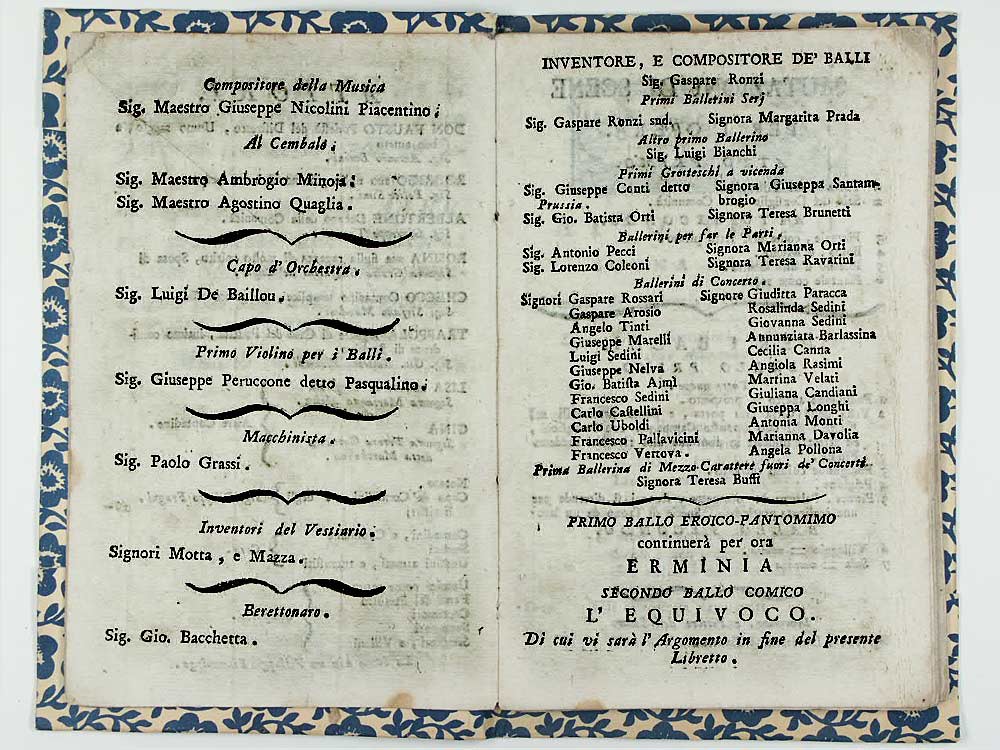 Compositore della Musica
Sig. Maestro Giuseppe Nicolini Piacentino.
Al Cembalo.
Sig. Maestro Ambrogio Minoja.
Sig. Maestro Agostino Quaglia.
Capo d'Orchestra.
Sig. Luigi De Baillou.
Primo Violino per i Balli.
Sig. Giuseppe Peruccone detto Pasqualino.
Macchinista.
Sig. Paolo Grassi.
Inventori del Vestiario.
Signori Motta, e Mazza.
Berettonaro.
Sig. Gio. Bacchetta.
INVENTORE, E COMPOSITORE DE' BALLI
Sig. Gaspare Ronzi
Primi Ballerini Serj
Sig. Gaspare Ronzi snd. Signora Margarita Prada
Altro primo Ballerino
Sig. Luigi Bianchi
Primi Grotteschi a vicenda
Sig. Giuseppe Conti detto Signora Giuseppa Santam-
Prussia. brogio
Sig. Gio. Batista Orti Signora Teresa Brunetti
Ballerini per far le Parti.
Sig. Antonio Pecci Signora Marianna Orti
Sig. Lorenzo Coleoni Signora Teresa Ravarini
Ballerini di Concerto.
Signori Gaspare Rossari Signore Giuditta Paracca
Gaspare Arosio Rosalinda Sedini
Angelo Tinti Giovanna Sedini
Giuseppe Marelli Annunziata Barlassina
Luigi Sedini Cecilia Canna
Giuseppe Nelva Angiola Rasimi
Gio. Batista Ajmi Martina Velati
Francesco Sedini Giuliana Candiani
Carlo Castellini Giuseppa Longhi
Carlo Uboldi Antonia Monti
Francesco Pallavicini Marianna Davolia
Francesco Vertova. Angela Pollona
Prima Ballerina di Mezzo-Carattere fuori de' Concerti.
Signora Teresa Buffi
PRIMO BALLO EROICO-PANTOMIMO
continuerà per ora
ERMINIA
SECONDO BALLO COMICO
L' EQUIVOCO.
Di cui vi sarà l'Argomento in fine del presente
Libretto.